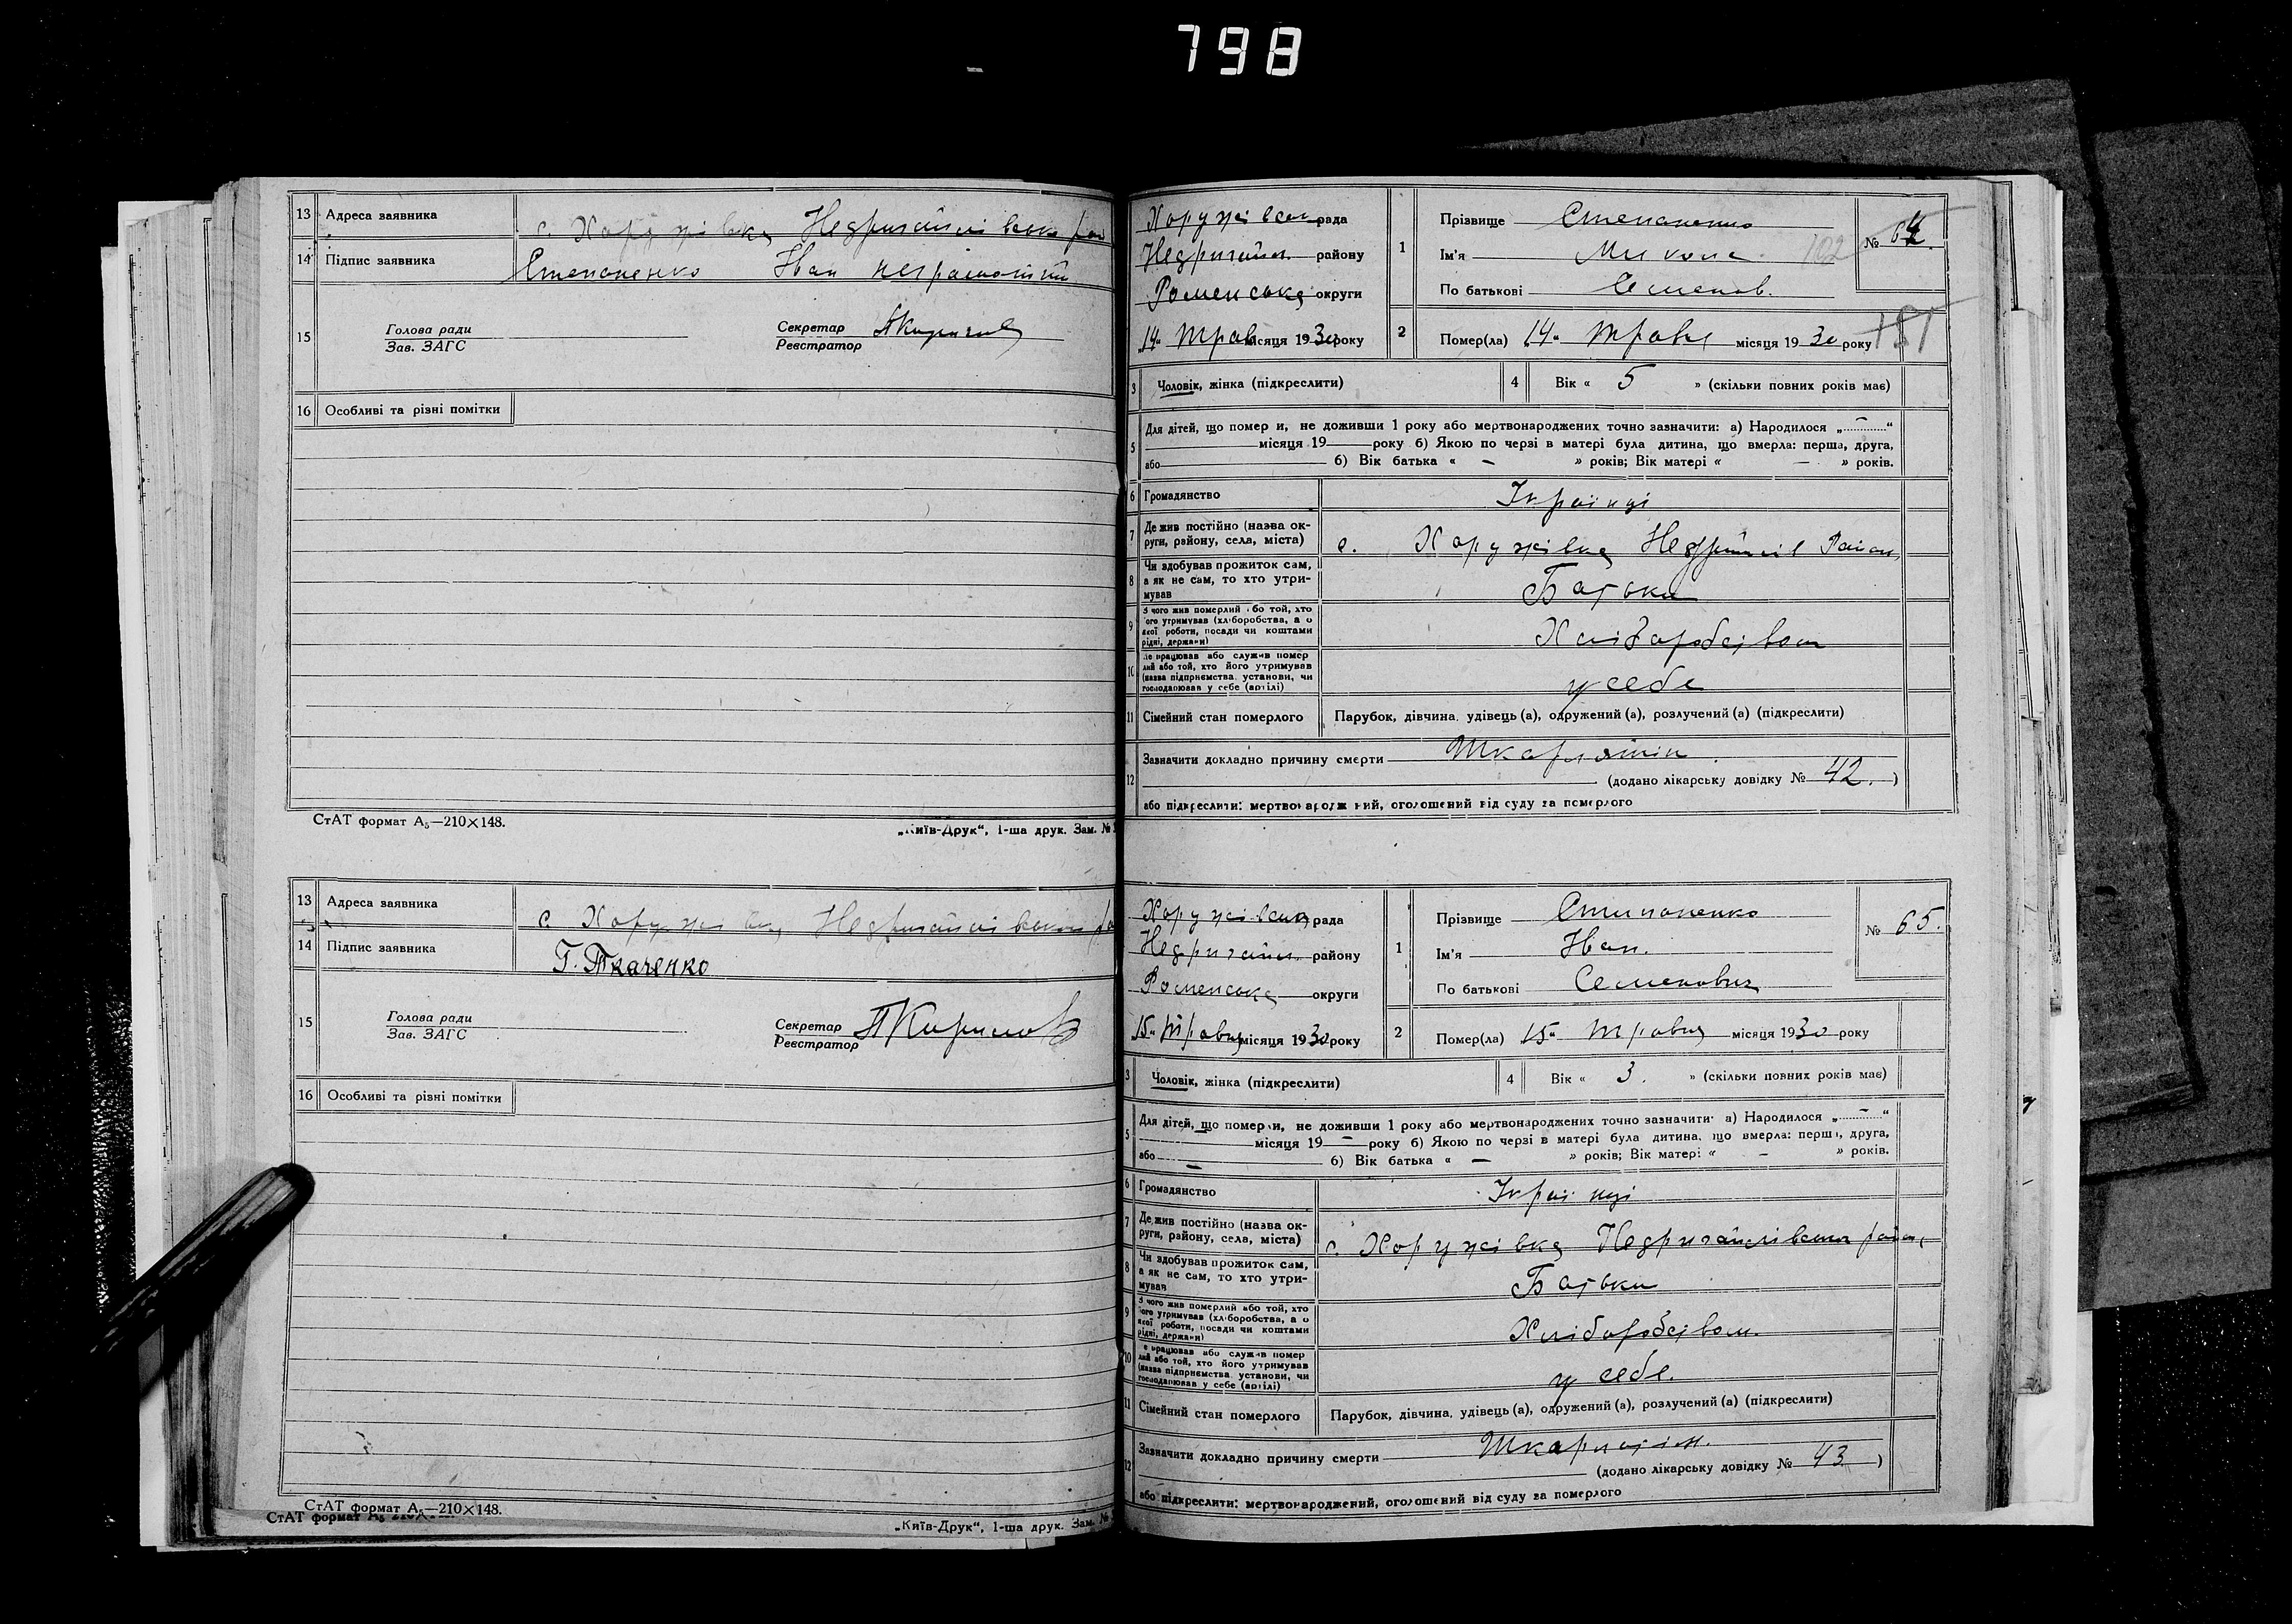 798
13 Адреса заявника с. Хоружівка Недригайлівська рай
14 Підпис заявника Степаненко Іван неграмотний
15 Голова ради Зав. ЗАГС Секретар Реєстратор
16 Особливі та різні помітки
СтАТ формат А5—210×148.
„Київ-Друк“, 1-ша друк. Зам. №
Хоружівськ рада
Недригайл. району
Роменська округи
„14“ Трав місяця 1930 року
1 Прізвище Степаненко
Ім'я Микола
По батькові Семенов.
№ 64.
102
2 Помер(ла) 14“ Травня місяця 1930 року
3 Чоловік, жінка (підкреслити)
4 Вік « 5 » (скільки повних років має)
5 Для дітей, що помер и, не доживши 1 року або мертвонароджених точно зазначити: а) Народилося „ — “
місяця 19 року б) Якою по черзі в матері була дитина, що вмерла: перша, друга,
або б) Вік батька « — » років; Вік матері « — » років.
6 Громадянство Українці
7 Де жив постійно (назва округи, району, села, міста) с. Хоружівка Недригайлів Район
8 Чи здобував прожиток сам, а як не сам, то хто утримував Батьки
9 З чого жив померлий або той, хто його утримував (хліборобства, а о якої роботи, посади чи коштами рідні, держави) Хліборобством
10 Де працював або служив помер лий або той, хто його утримував (назва підприємства, установи, чи господарював у себе (артілі) у себе
11 Сімейний стан померлого Парубок, дівчина, удівець (а), одружений (а), розлучений (а) (підкреслити)
12 Зазначити докладно причину смерти Шкарлятін
(додано лікарську довідку № 42. )
або підкреслити: мертвонароджений, оголошений від суду за померлого
13 Адреса заявника с. Хоружівка Недригайлівської ра
14 Підпис заявника Г. Ткаченко
15 Голова ради Зав. ЗАГС Секретар Реєстратор
16 Особливі та різні помітки
СтАТ формат А5—210×148.
СтАТ формат А5 210×148.
„Київ-Друк“, 1-ша друк. Зам. №
Хоружівська рада
Недригайл. району
Роменська округи
15“ Травня місяця 1930 року
1 Прізвище Степаненко
Ім'я Іван.
По батькові Семенович
№ 65.
2 Помер(ла) 15“ Травня місяця 1930 року
3 Чоловік, жінка (підкреслити)
4 Вік « 3. » (скільки повних років має)
5 Для дітей, що померли, не доживши 1 року або мертвонароджених точно зазначити: а) Народилося „ — “
місяця 19 — року б) Якою по черзі в матері була дитина, що вмерла: перша, друга,
або — б) Вік батька « — » років; Вік матері « — » років.
6 Громадянство Українці
7 Де жив постійно (назва округи, району, села, міста) с. Хоружівка Недригайлівська район
8 Чи здобував прожиток сам, а як не сам, то хто утримував Батьки
9 З чого жив померлий або той, хто його утримував (хліборобства, а о якої роботи, посади чи коштами рідні, держави) Хліборобством.
10 Де працював або служив помер лий або той, хто його утримував (назва підприємства, установи, чи господарював у себе (артілі) у себе.
11 Сімейний стан померлого Парубок, дівчина, удівець (а), одружений (а), розлучений (а) (підкреслити)
12 Зазначити докладно причину смерти Шкарлатін.
(додано лікарську довідку № 43 )
або підкреслити: мертвонароджений, оголошений від суду за померлого